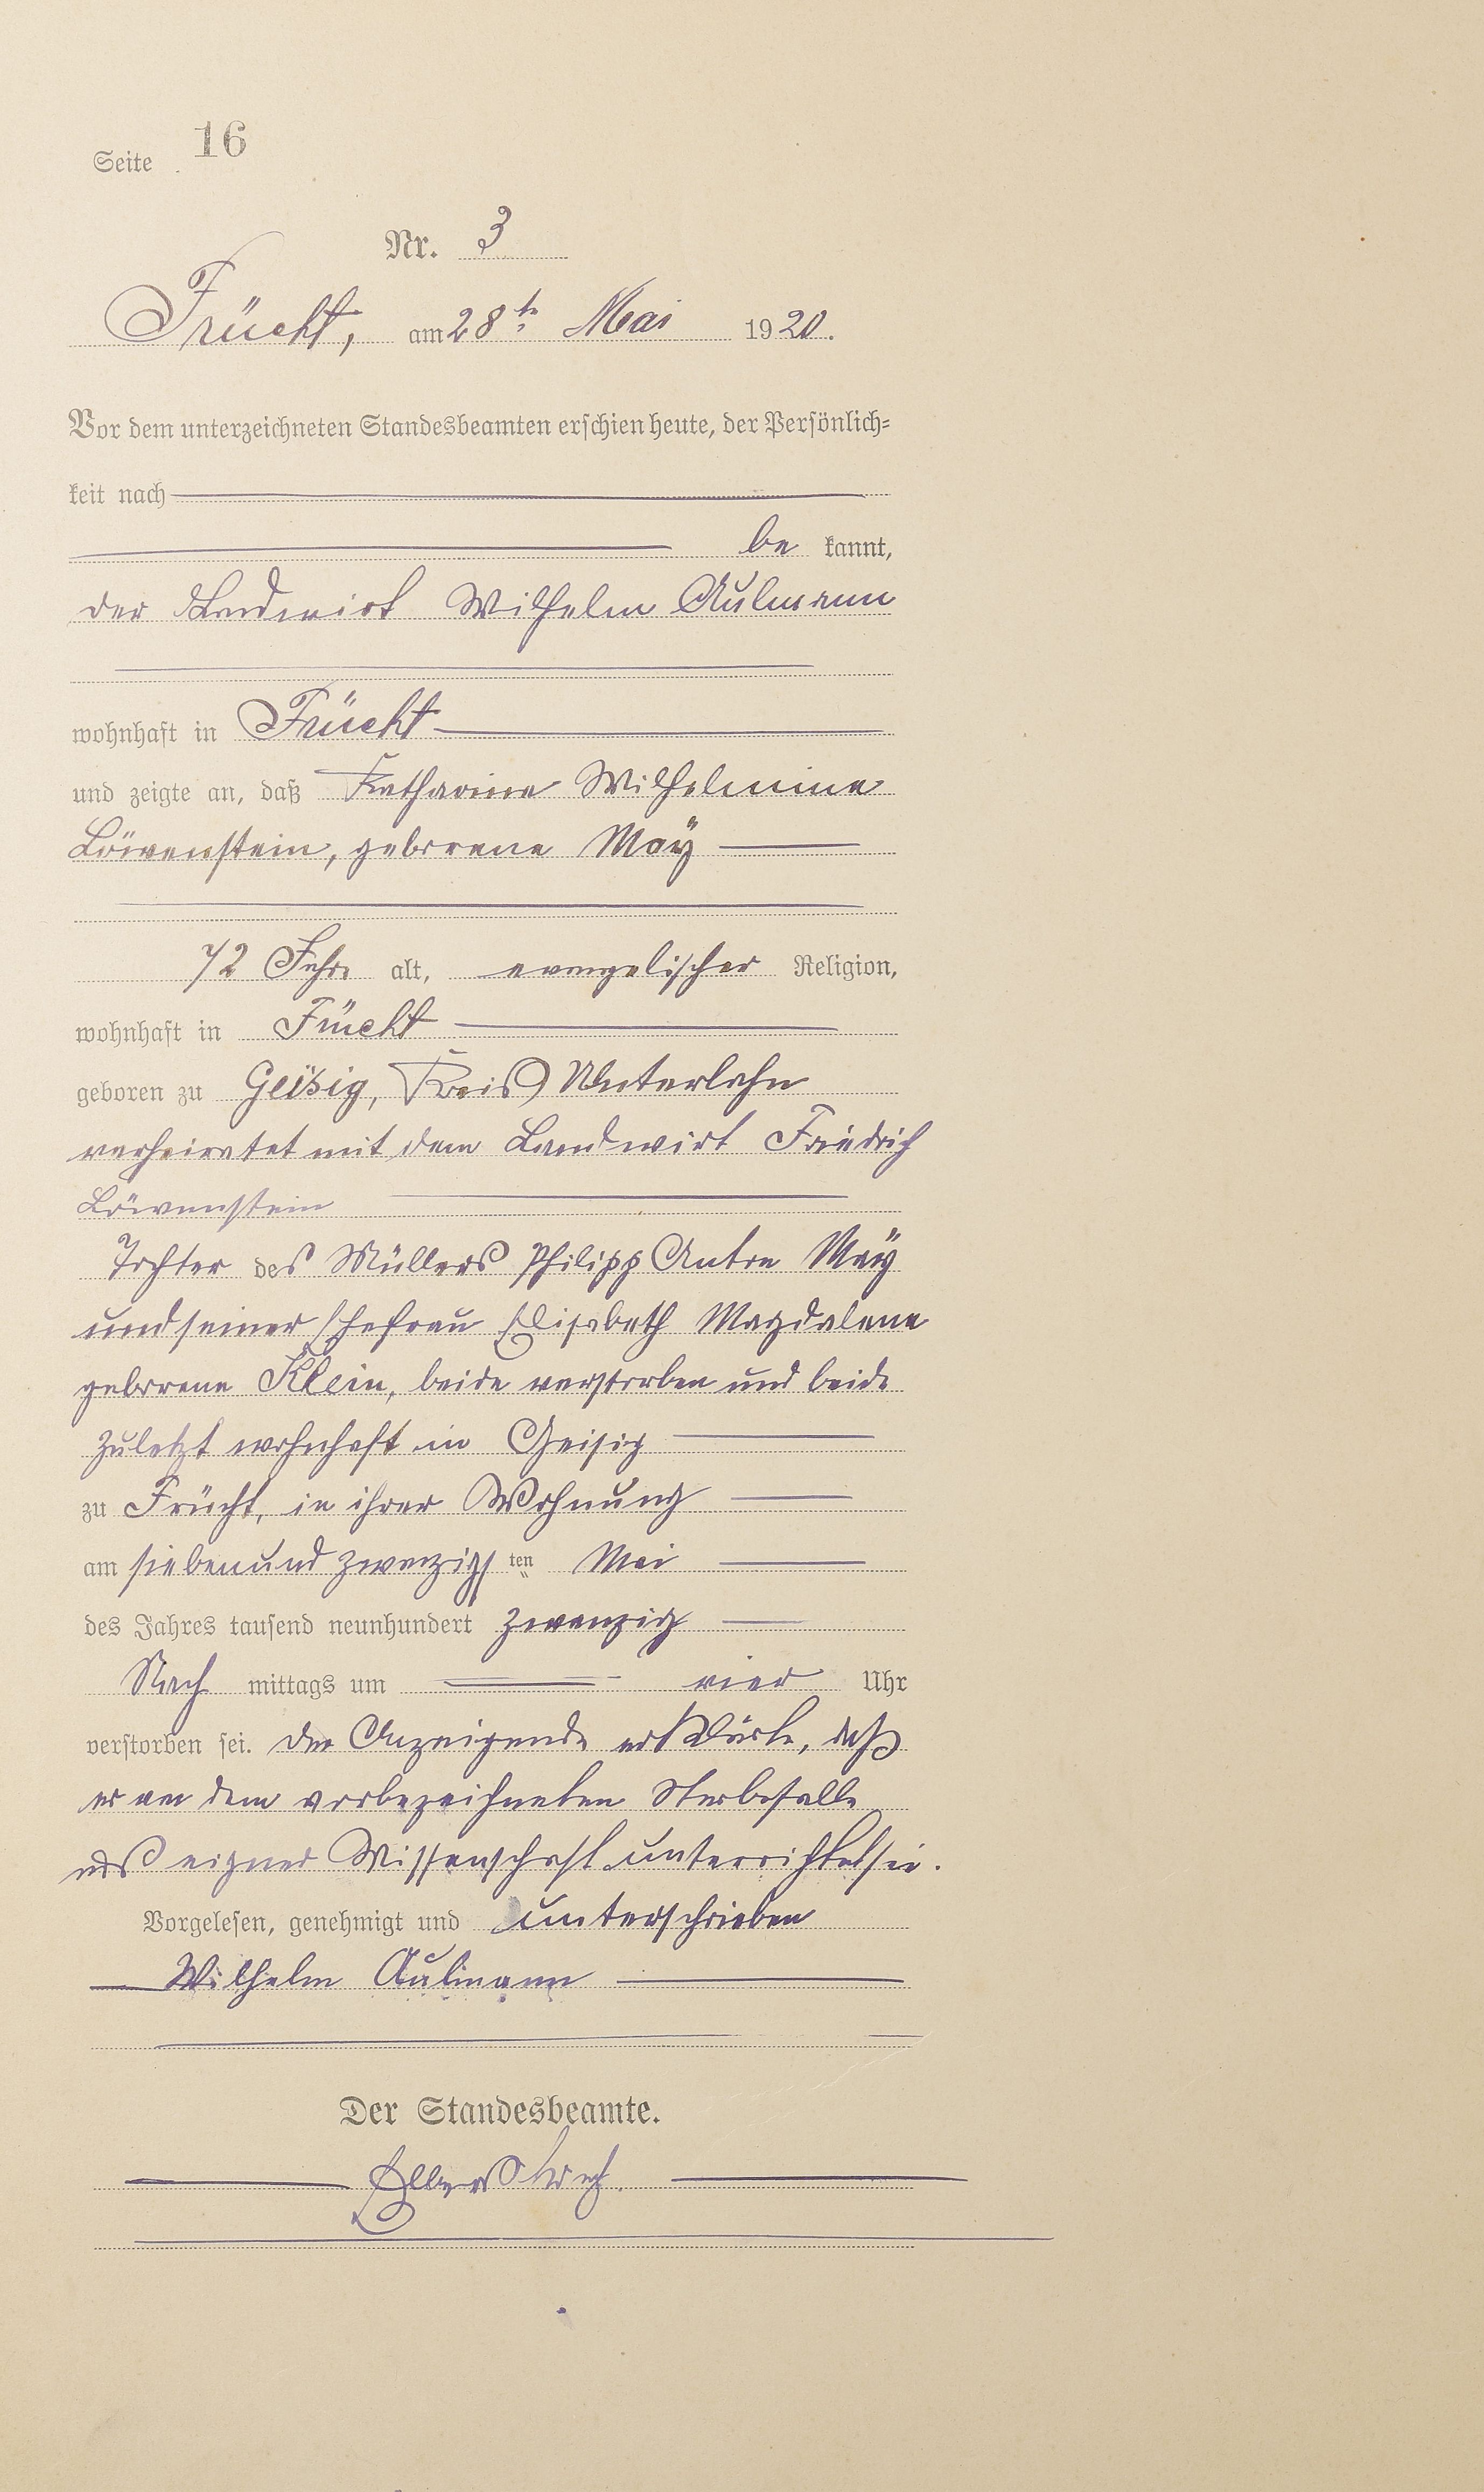 Seite 16
Nr. 3
Frücht, am 28ten Mai 1920.
Vor dem unterzeichneten Standesbeamten erschien heute, der Persönlich=
keit nach
be kannt,
der Landwirt Wilhelm Aulmann
wohnhaft in Frücht
und zeigte an, daß Katharina Wilhelmine
Löwenstein, geborene Maÿ
72 Jahre alt, evangelischer Religion,
wohnhaft in Frücht
geboren zu Geisig, Kreis Unterlahn
verheiratet mit dem Landwirt Friedrich
Löwenstein
Tochter des Müllers Philipp Anton Maÿ
und seiner Ehefrau Elisabeth Magdalene
geborene Klein, beide verstorben und beide
zuletzt wohnhaft in Geisig
zu Frücht, in ihrer Wohnung
am siebenundzwanzigsten Mai
des Jahres tausend neunhundert zwanzig
Nach mittags um vier Uhr
verstorben sei. Der Anzeigende erklärte, daß
er von dem vorbezeichneten Sterbefalle
aus eigner Wissenschaft unterrichtet sei.
Vorgelesen, genehmigt und unterschrieben
Wilhelm Aulmann
Der Standesbeamte.